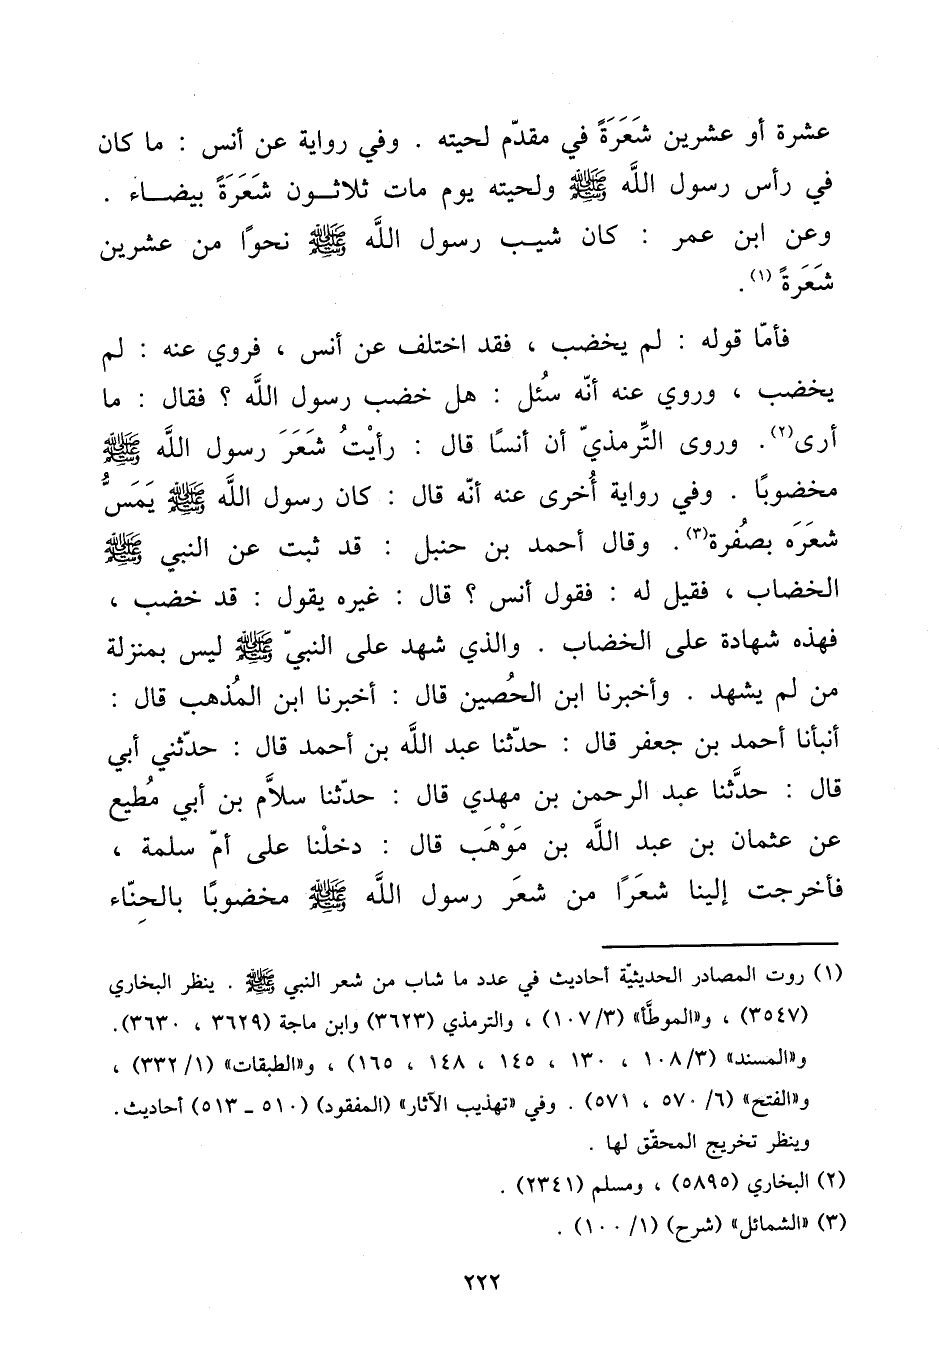 عشرة أو عشرين شَعَرَةً في مقدّم لحيته . وفي رواية عن أنس : ما كان
في رأس رسول اللَّه ﷺ ولحيته يوم مات ثلاثــون شَعَرَةً بيضــاء .
وعن ابن عمر : كان شيب رسول اللَّه ﷺ نحوًا من عشرين
شَعَرةً (١).
فأمّا قوله : لم يخضب ، فقد اختلف عن أنس ، فروي عنه : لم
يخضب ، وروي عنه أنّه سُئل : هل خضب رسول اللَّه ؟ فقال : ما
أرى(٢). وروى التِّرمذيّ أن أنسًا قال : رأيْتُ شَعَرَ رسول اللَّه ﷺ
مخضوبًا . وفي رواية أُخرى عنه أنّه قال : كان رسول اللَّه ﷺ يَمَسُّ
شعرَه بصُفرة(٣). وقال أحمد بن حنبل : قد ثبت عن النبي ﷺ
الخضاب ، فقيل له : فقول أنس ؟ قال : غيره يقول : قد خضب ،
فهذه شهادة على الخضاب . والذي شهد على النبيّ ﷺ ليس بمنزلة
من لم يشهد . وأخبرنا ابن الحُصين قال : أخبرنا ابن المُذهب قال :
أنبأنا أحمد بن جعفر قال : حدّثنا عبد اللَّه بن أحمد قال : حدّثني أبي
قال : حدَّثنا عبد الرحمن بن مهدي قال : حدّثنا سلاَّم بن أبي مُطيع
عن عثمان بن عبد اللَّه بن مَوْهَب قال : دخلْنا على أمّ سلمة ،
فأخرجت إلينا شعَرًا من شعَر رسول اللَّه ﷺ مخضوبًا بالحِنّاء
(١) روت المصادر الحديثيّة أحاديث في عدد ما شاب من شعر النبي ﷺ . ينظر البخاري
(٣٥٤٧) ، و«الموطَّأ» (٣/ ١٠٧) ، والترمذي (٣٦٢٣) وابن ماجة (٣٦٢٩ ، ٣٦٣٠).
و«المسند» (٣/ ١٠٨ ، ١٣٠ ، ١٤٥ ، ١٤٨ ، ١٦٥) ، و«الطبقات» (١/ ٣٣٢) ،
و«الفتح» (٦/ ٥٧٠ ، ٥٧١) . وفي «تهذيب الآثار» (المفقود) (٥١٠ ـ ٥١٣) أحاديث.
وينظر تخريج المحقّق لها .
(٢) البخاري (٥٨٩٥) ، ومسلم (٢٣٤١) .
(٣) «الشمائل» (شرح) (١/ ١٠٠) .
٢٢٢